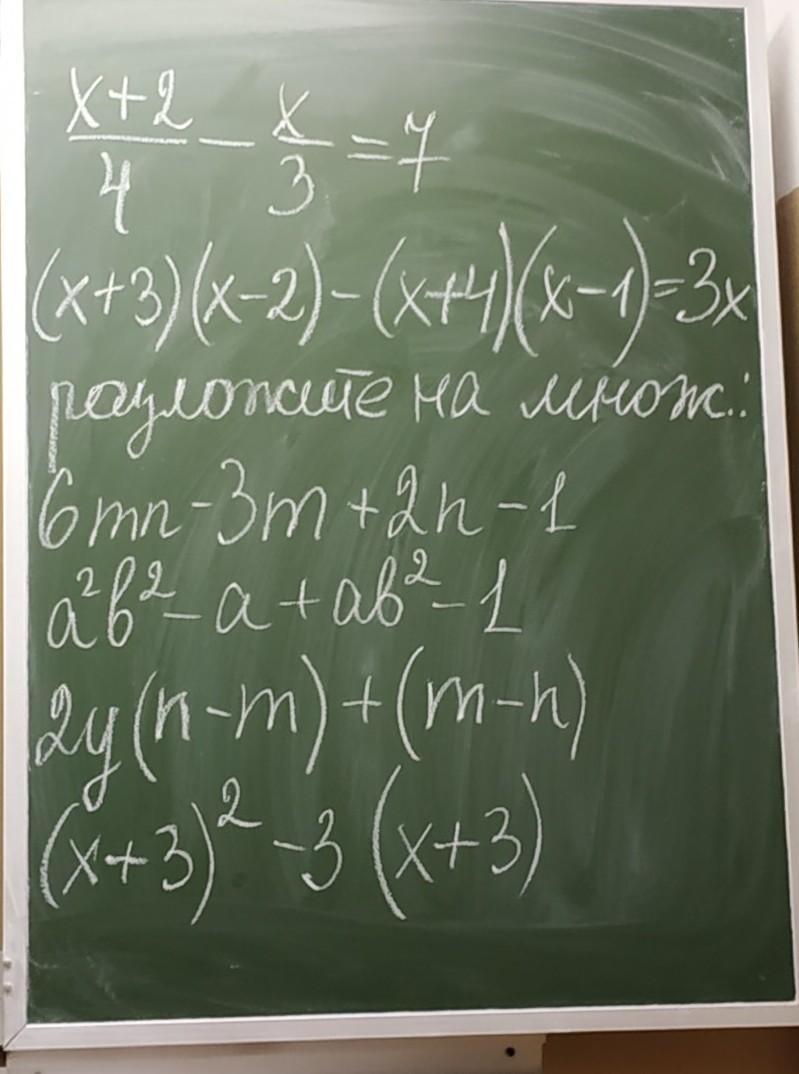 (x+2)/4 - x/3 = 7
(x+3)(x-2)-(x+4)(x-1)=3x
разложите на множ.:
6mn-3m+2n-1
a²b²-a+ab²-1
2y(n-m)+(m-n)
(x+3)²-3(x+3)